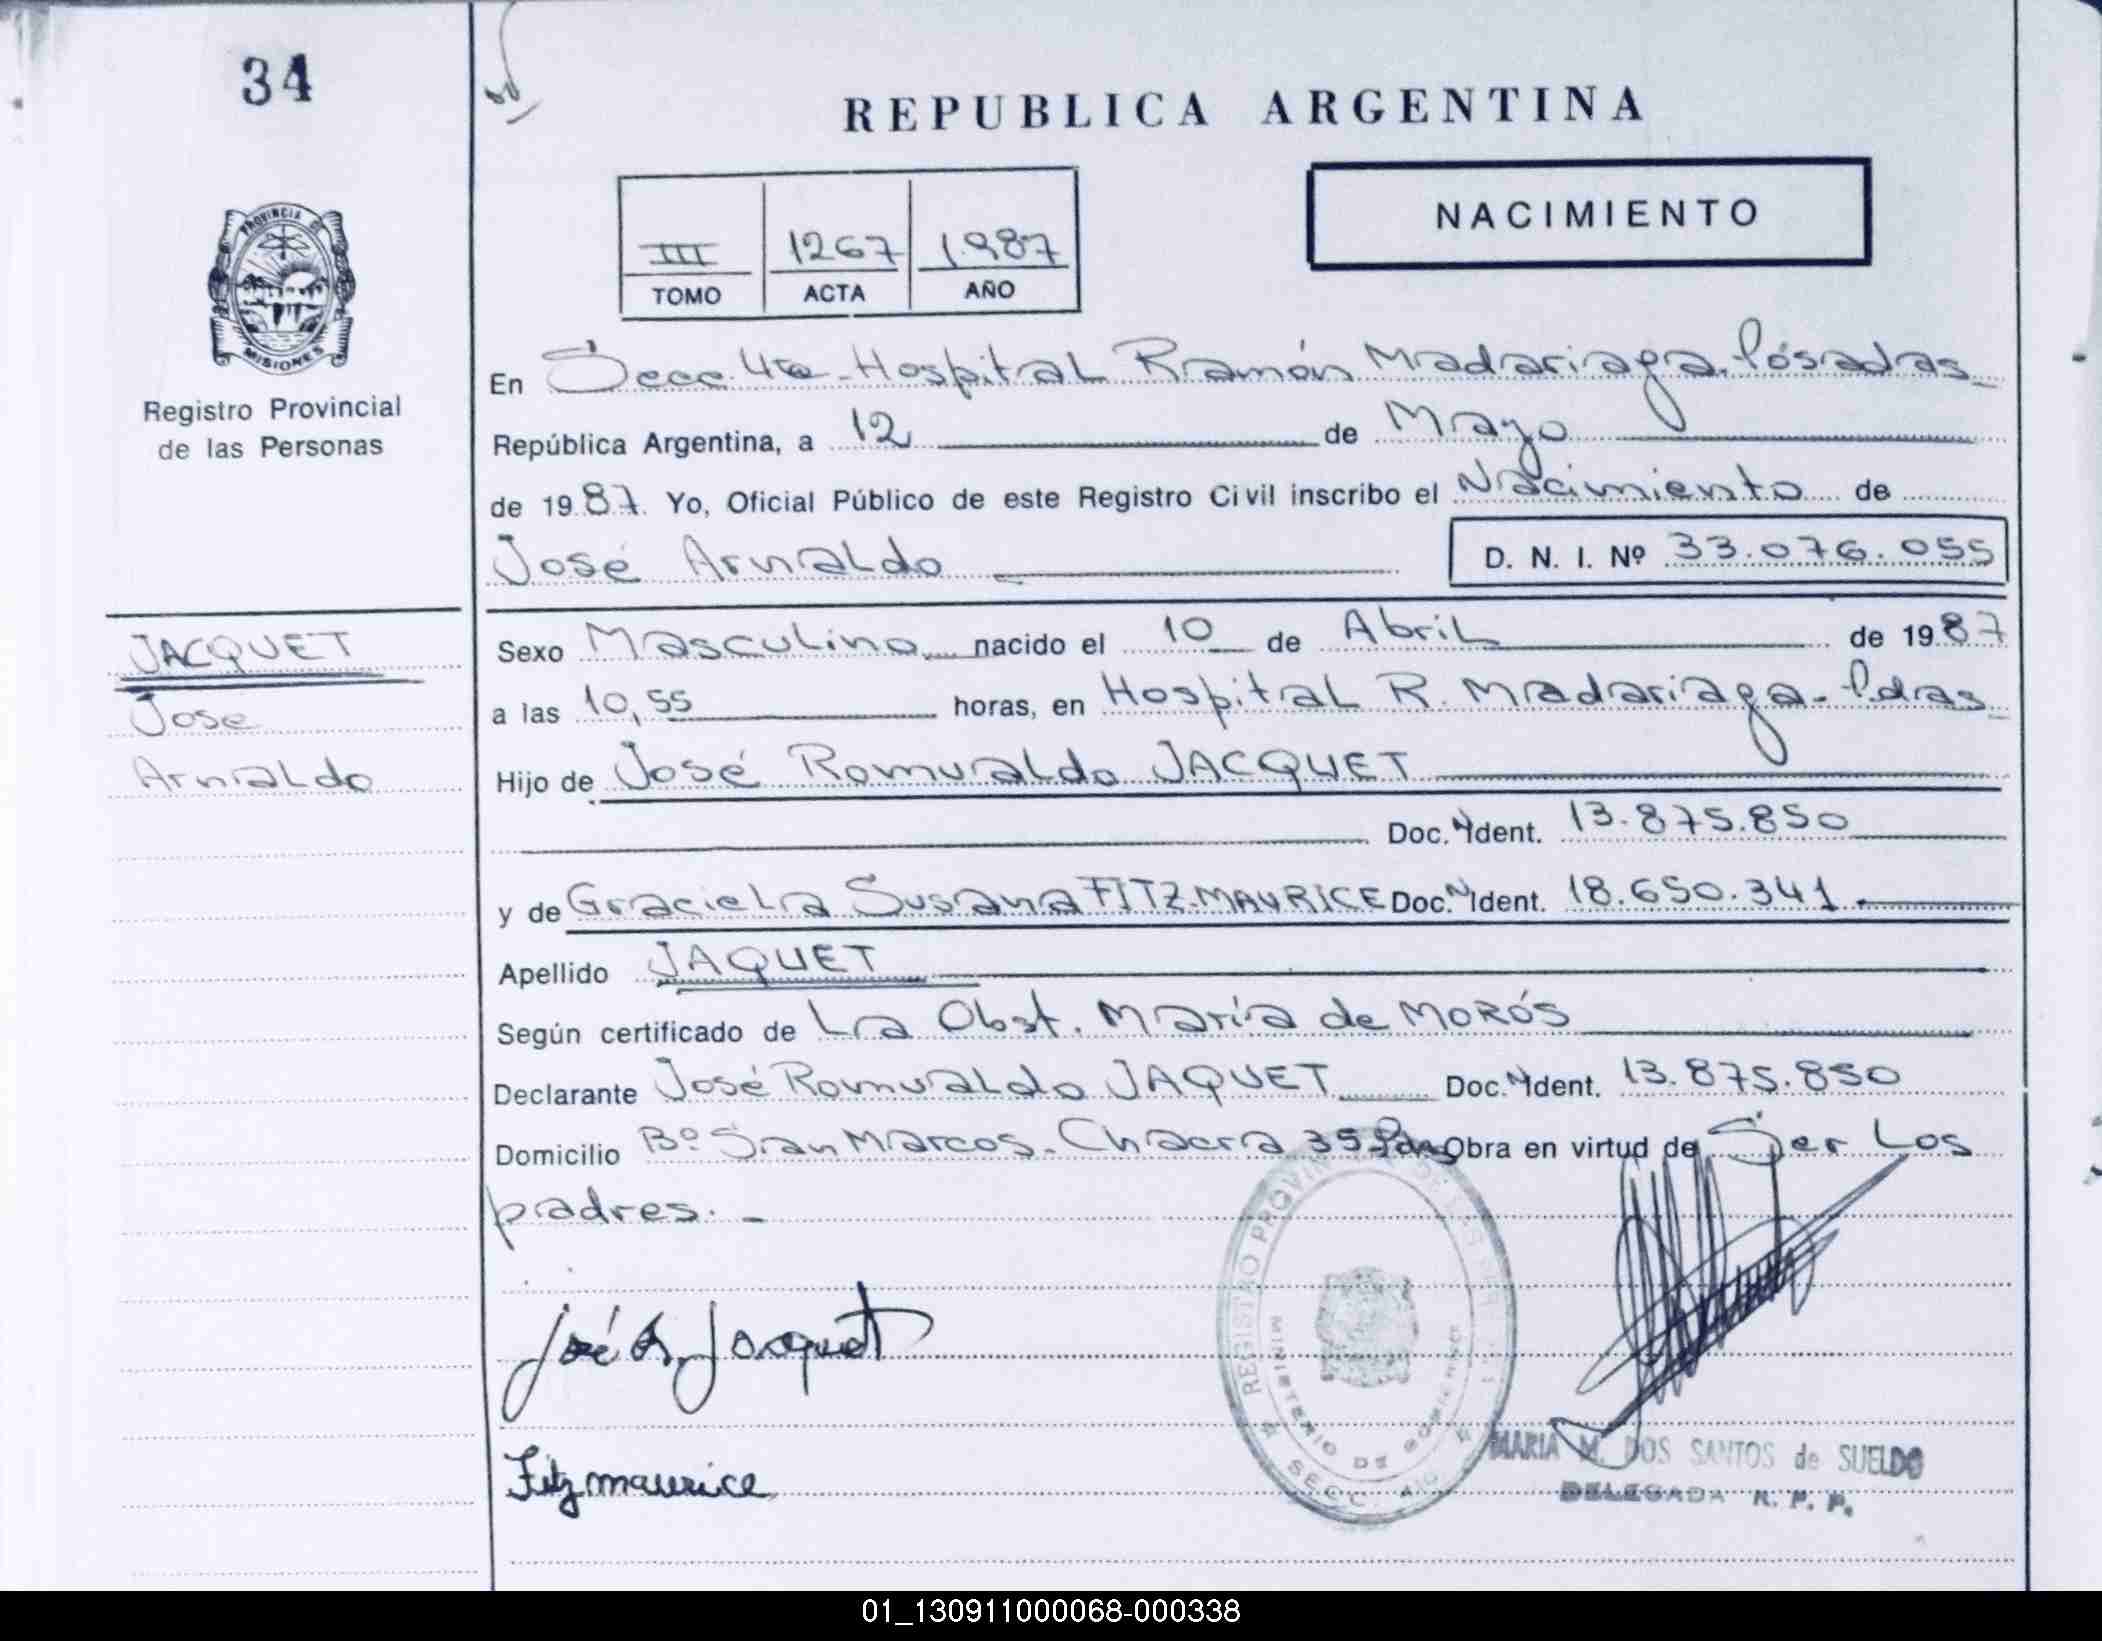 34
REPUBLICA ARGENTINA
NACIMIENTO
III 1267 1.987
TOMO ACTA AÑO
PROVINCIA DE
MISIONES
Registro Provincial
de las Personas
En Secc. 4ta - Hospital Ramón Madariaga. Pósadas
República Argentina, a 12 de Mayo
de 19 87. Yo, Oficial Público de este Registro Civil inscribo el Nacimiento de
José Arnaldo D. N. I. Nº 33.076.055
JACQUET
Jose
Arnaldo
Sexo Masculino nacido el 10 de Abril de 19 87
a las 10,55 horas, en Hospital R. Madariaga - Pdas
Hijo de José Romualdo JACQUET
Doc. Ident. 13.875.850
y de Graciela Susana FITZ.MAURICE Doc. Ident. 18.650.341.
Apellido JAQUET
Según certificado de La Obst. María de MORÓS
Declarante José Romualdo JAQUET Doc. Ident. 13.875.850
Domicilio Bº San Marcos. Chacra 35 Pdas Obra en virtud de Ser Los
padres. -
José R. Jacquet
REGISTRO PROVIN DE LAS PER
MINISTERIO DE GOBIERNO
SECC. 4ta
Fitzmaurice
MARIA M. DOS SANTOS de SUELDO
DELEGADA R. P. P.
01_130911000068-000338